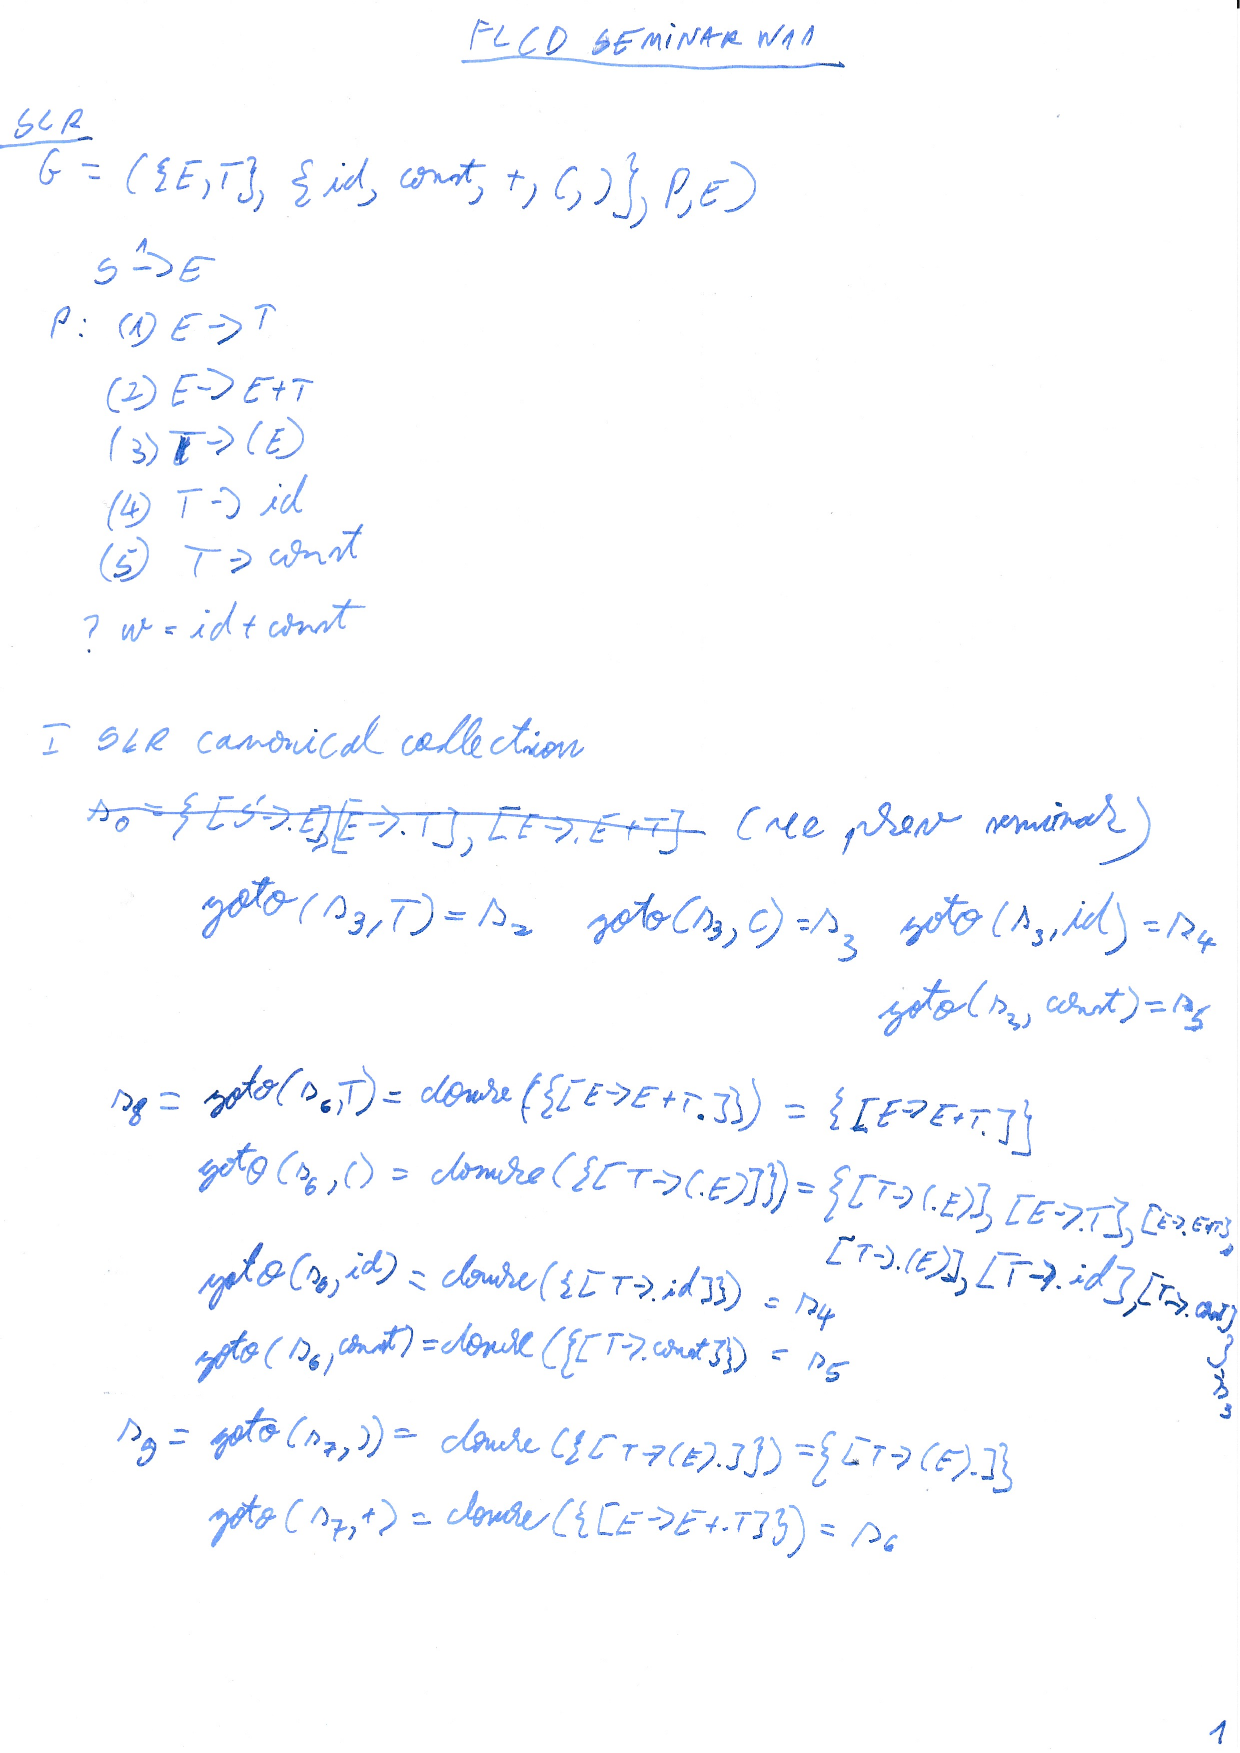 FLCD SEMINAR W11
SLR
G = ({E,T}, {id, const, +, (, )}, P, E)
S' -> E
P: (1) E -> T
(2) E -> E+T
(3) T -> (E)
(4) T -> id
(5) T -> const
? w = id + const
I SLR canonical collection
s0 = {[S'->.E],[E->.T], [E->.E+T]} (see prev seminar)
goto(s3,T) = s2 goto(s3, () = s3 goto(s3, id) = s4
goto(s3, const) = s5
s8 = goto(s6,T) = closure({[E->E+T.]}) = {[E->E+T.]}
goto(s6, () = closure({[T->(.E)]}) = {[T->(.E)], [E->.T], [E->.E+T],
[T->.(E)], [T->.id], [T->.const]
} = s3
goto(s6, id) = closure({[T->.id]}) = s4
goto(s6, const) = closure({[T->.const]}) = s5
s9 = goto(s7, )) = closure({[T->(E).]}) = {[T->(E).]}
goto(s7, +) = closure({[E->E+.T]}) = s6
1